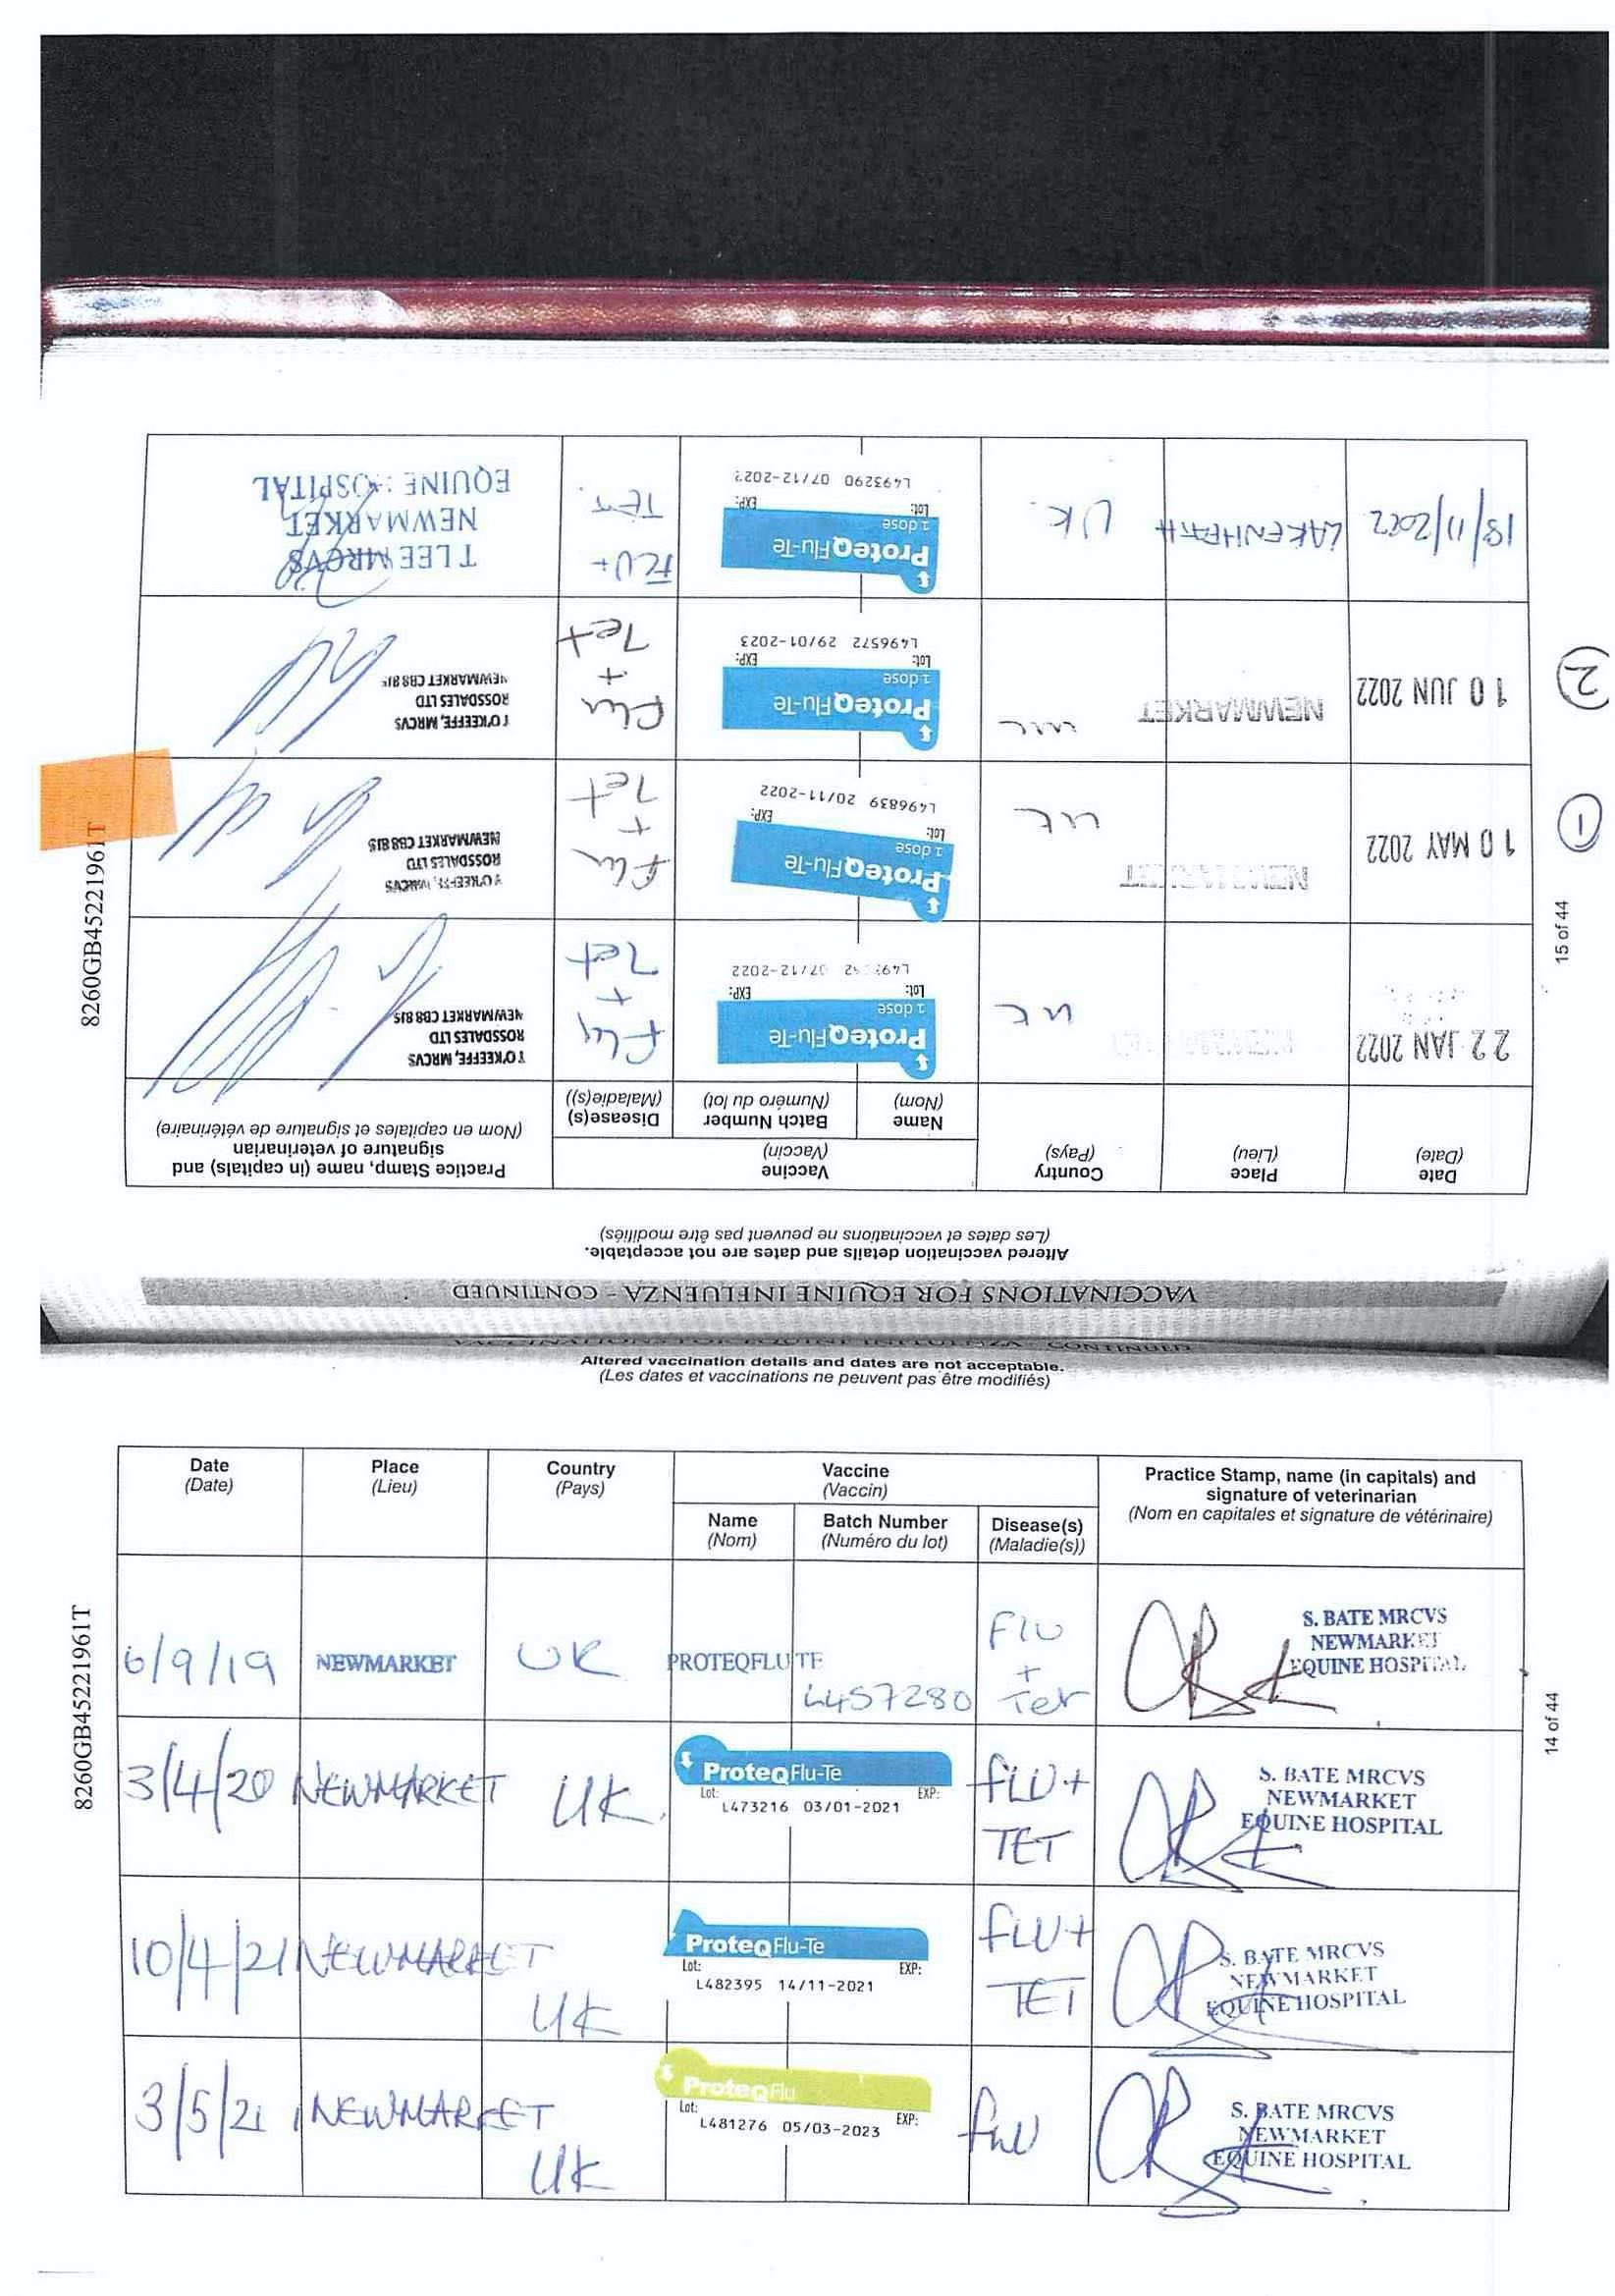 Altered vaccination details and dates are not acceptable.
(Les dates et vaccinations ne peuvent pas être modifiés)
Date
(Date)
Place
(Lieu)
Country
(Pays)
Vaccine
(Vaccin)
Name
(Nom)
Batch Number
(Numéro du lot)
Disease(s)
(Maladie(s))
Practice Stamp, name (in capitals) and
signature of veterinarian
(Nom en capitales et signature de vétérinaire)
6/9/19
NEWMARKET
UK
PROTEQFLU TE
L457280
Flu
+
Tet
S. BATE MRCVS
NEWMARKET
EQUINE HOSPITAL
3/4/20
NEWMARKET
UK
ProteqFlu-Te
Lot: EXP:
L473216 03/01-2021
FLU+
TET
S. BATE MRCVS
NEWMARKET
EQUINE HOSPITAL
10/4/21
NEWMARKET
UK
ProteqFlu-Te
Lot: EXP:
L482395 14/11-2021
FLU+
TET
S. BATE MRCVS
NEWMARKET
EQUINE HOSPITAL
3/5/21
NEWMARKET
UK
ProteqFlu
Lot: EXP:
L481276 05/03-2023
FLU
S. BATE MRCVS
NEWMARKET
EQUINE HOSPITAL
8260GB45221961T
14 of 44
VACCINATIONS FOR EQUINE INFLUENZA - CONTINUED
Altered vaccination details and dates are not acceptable.
(Les dates et vaccinations ne peuvent pas être modifiés)
Date
(Date)
Place
(Lieu)
Country
(Pays)
Vaccine
(Vaccin)
Name
(Nom)
Batch Number
(Numéro du lot)
Disease(s)
(Maladie(s))
Practice Stamp, name (in capitals) and
signature of veterinarian
(Nom en capitales et signature de vétérinaire)
22 JAN 2022
UK
ProteqFlu-Te
1 dose
Lot: EXP:
07/12-2022
Flu
+
Tet
T O'KEEFFE, MRCVS
ROSSDALES LTD
NEWMARKET CB8 8JS
1
10 MAY 2022
NEWMARKET
UK
ProteqFlu-Te
1 dose
Lot: EXP:
L496839 20/11-2022
Flu
+
Tet
T O'KEEFFE, MRCVS
ROSSDALES LTD
NEWMARKET CB8 8JS
2
10 JUN 2022
NEWMARKET
UK
ProteqFlu-Te
1 dose
Lot: EXP:
L496572 29/01-2023
Flu
+
Tet
T O'KEEFFE, MRCVS
ROSSDALES LTD
NEWMARKET CB8 8JS
18/11/2022
LAKENHEATH
UK.
ProteqFlu-Te
1 dose
Lot: EXP:
L493290 07/12-2022
FLU+
TET.
T LEE MRCVS
NEWMARKET
EQUINE HOSPITAL
8260GB45221961T
15 of 44